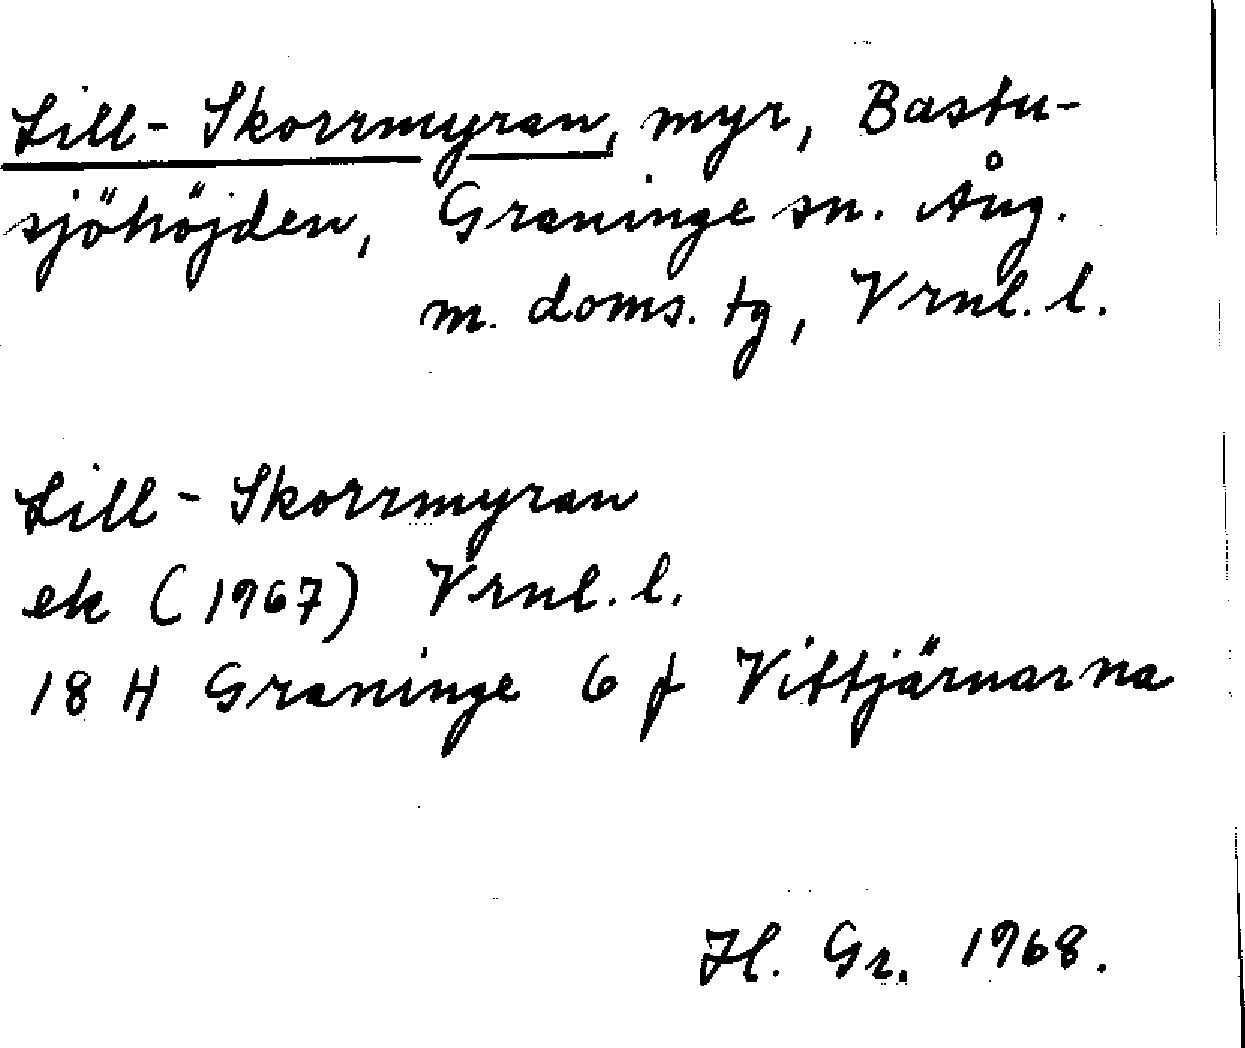 Lill-Skorrmyran, myr, Bastu-
sjöhöjden, Graninge sn. Ång.
m. doms. tg, Vrnl. l.
Lill-Skorrmyran
ek (1967) Vrnl. l.
18 H Graninge 6 f Vittjärnarna
Hl. Gr. 1968.